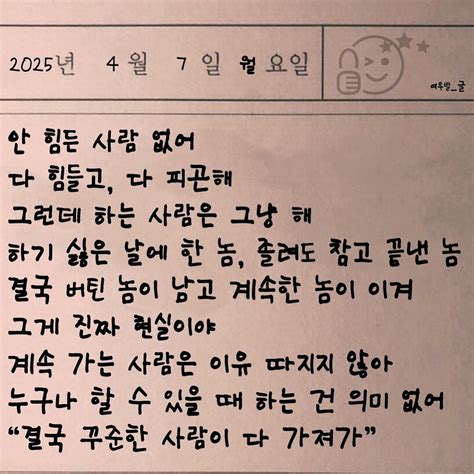 2025년 4월 7일 월요일
여우별_글
안 힘든 사람 없어
다 힘들고, 다 피곤해
그런데 하는 사람은 그냥 해
하기 싫은 날에 한 놈, 졸려도 참고 끝낸 놈
결국 버틴 놈이 남고 계속한 놈이 이겨
그게 진짜 현실이야
계속 가는 사람은 이유 따지지 않아
누구나 할 수 있을 때 하는 건 의미 없어
“결국 꾸준한 사람이 다 가져가”